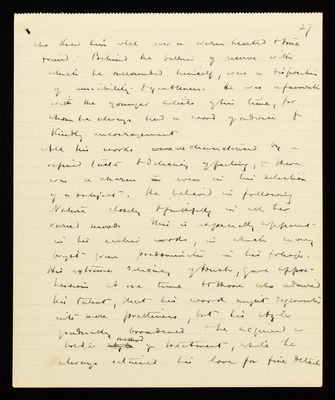 27
who knew him well was a warm hearted & true
friend. Behind the barrier of reserve with
which he surrounded himself, was a disposition
of amiability & gentleness. He was a favourite
with the younger artists of his time, for
whom he always had a word of advice &
kindly encouragement
All his works were characterised by a
refined taste & delicacy of feeling, & there
was a charm even in his selection
of a subject. He believed in following
Nature closely & faithfully in all her
varied moods. This is especially apparent
in his earlier works, in which a very
bright green predominates in his foliage.
His extreme delicacy of touch, gave appre-
hension at one time to those who admired
his talent, that his work might degenerate
into mere prettiness, but his style
gradually broadened & he acquired a
bolder method of treatment, while he
always retained his love for fine detail